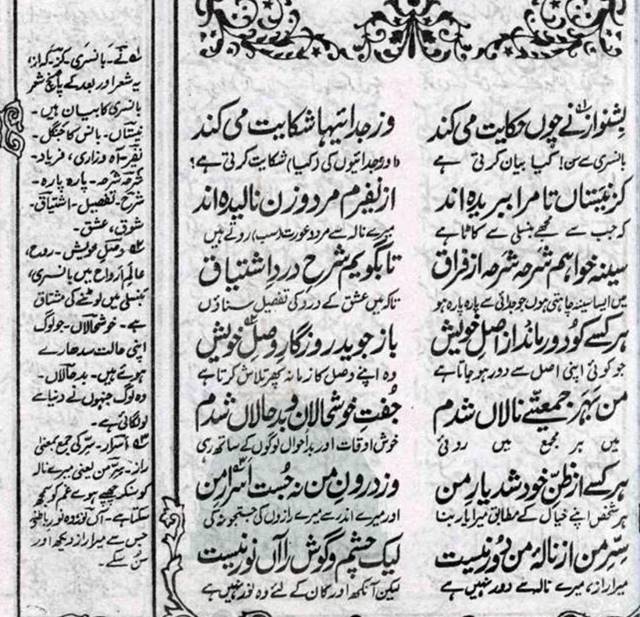 بشنو از نے چوں حکایت می کند وز جدائیہا شکایت می کند
بانسری سے سن! کیا بیان کرتی ہے اور جدائیوں کی (کیا) شکایت کرتی ہے؟
کز نیستاں تا مرا ببریدہ اند از نفیرم مرد و زن نالیدہ اند
کہ جب سے مجھے بنسلی سے کاٹا ہے میرے نالہ سے مرد و عورت (سب) روتے ہیں
سینہ خواہم شرحہ شرحہ از فراق تا بگویم شرح درد اشتیاق
میں ایسا سینہ چاہتی ہوں جو جدائی سے پارہ پارہ ہو تاکہ میں عشق کے درد کی تفصیل سناؤں
ہر کسے کو دور ماند از اصل خویش باز جوید روزگار وصل خویش
جو کوئی اپنی اصل سے دور ہو جاتا ہے وہ اپنے وصل کا زمانہ پھر تلاش کرتا ہے
من بہر جمعیتے نالاں شدم جفت خوشحالان و بدحالاں شدم
میں ہر مجمع میں روئی خوش اوقات اور بد احوال لوگوں کے ساتھ رہی
ہر کسے از ظن خود شد یار من وز درون من نہ جست اسرار من
ہر شخص اپنے خیال کے مطابق میرا یار بنا اور میرے اندر سے میرے رازوں کی جستجو نہ کی
سر من از نالۂ من دور نیست لیک چشم و گوش را آں نور نیست
میرا راز، میرے نالہ سے دور نہیں ہے لیکن آنکھ اور کان کے لئے وہ نور نہیں ہے
۱ نے۔ بانسری۔ کز۔ کہ از،
یہ شعر اور بعد کے پانچ شعر
بانسری کا بیان ہیں۔
نیستاں۔ بانس کا جنگل۔
نفیر۔ آہ و زاری، فریاد۔
شرحہ شرحہ۔ پارہ پارہ۔
شرح۔ تفصیل۔ اشتیاق۔
شوق، عشق۔
۲ وصل خویش۔ روح،
عالم ارواح میں بانسری،
بنسلی میں لوٹنے کی مشتاق
ہے۔ خوشحالاں۔ جو لوگ
اپنی حالت سدھارے
ہوئے ہیں۔ بدحالاں۔
وہ لوگ جنہوں نے دنیا سے
لو لگائی ہے۔
۳ اسرار۔ سِر کی جمع بمعنی
راز۔ سِرِّ من یعنی میرے نالہ
کو سنکر چھپے ہوئے غم کو سمجھ
سکتا ہے۔ آں نور وہ نور باطنی
جس سے میرا راز دیکھ اور
سن سکے۔